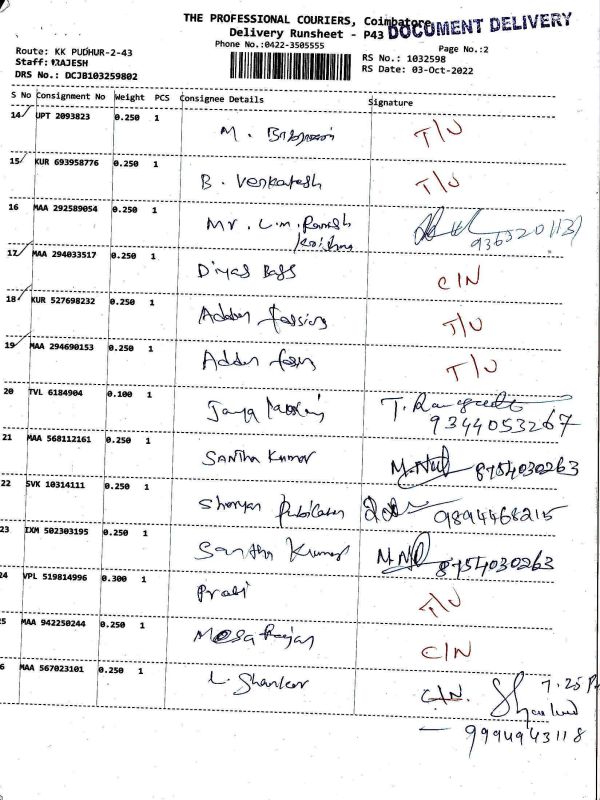 THE PROFESSIONAL COURIERS, Coimbatore
Delivery Runsheet - P43 DOCUMENT DELIVERY
Phone No.:0422-3505555 Page No.:2
Route: KK PUDHUR-2-43 RS No.: 1032598
Staff: RAJESH RS Date: 03-Oct-2022
DRS No.: DCJB103259802
S No Consignment No Weight PCS Consignee Details Signature
14 UPT 2093823 0.250 1 M. T/U
15 KUR 693958776 0.250 1 B. Venkatesh T/U
16 MAA 292589054 0.250 1 Mr. L.M. Ramesh
Krishna
17 MAA 294033517 0.250 1 Divas Bags C/N
18 KUR 527698232 0.250 1 T/U
19 MAA 294690153 0.250 1 T/U
20 TVL 6184904 0.100 1 Jaya T.
9344053267
21 MAA 568112161 0.250 1 Santha Kumar 8754030263
22 SVK 10314111 0.250 1 9894468215
23 IXM 502303195 0.250 1 Santha Kumar 8754030263
24 VPL 519814996 0.300 1 T/U
25 MAA 942250244 0.250 1 C/N
6 MAA 567023101 0.250 1 L. Shankar C/N. 7.25 P
9994943118